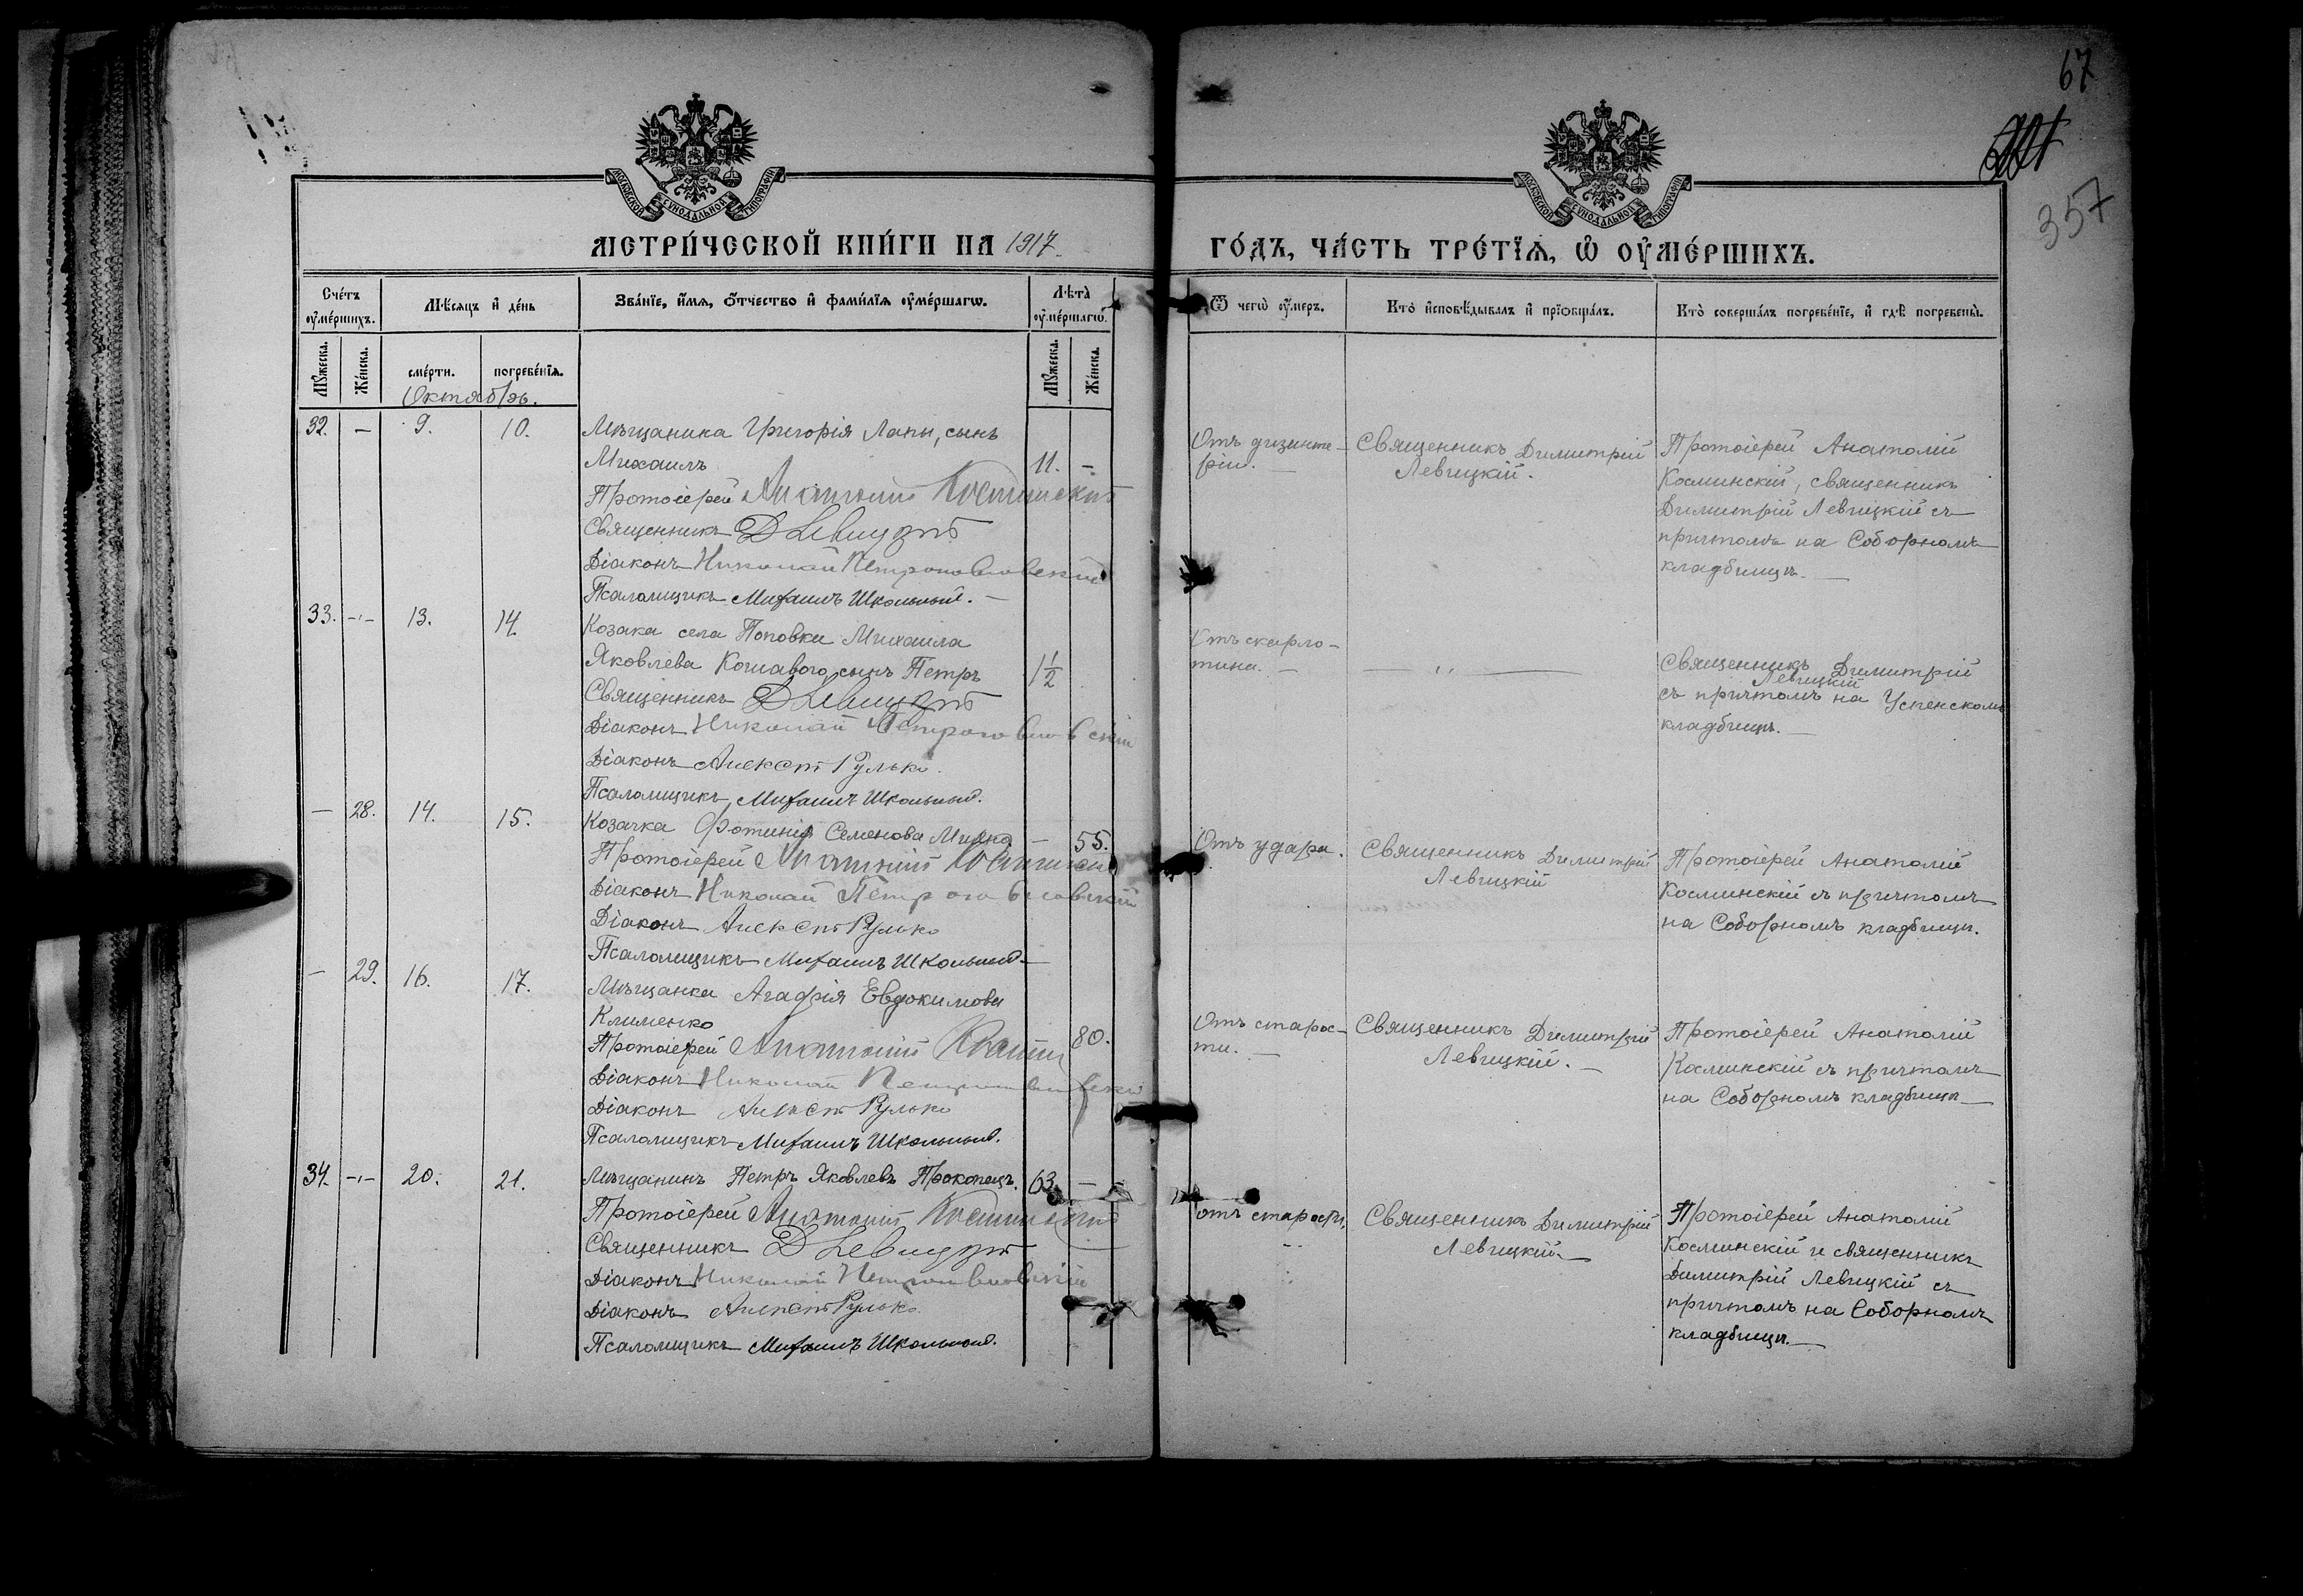 67
357
МОСКОВСКОЙ СѴНОДАЛЬНОЙ ТИПОГРАФІИ
МОСКОВСКОЙ СѴНОДАЛЬНОЙ ТИПОГРАФІИ
МЕТРИ́ЧЕСКОЙ КНИ́ГИ НА 1917.
ГО́ДЪ, ЧА́СТЬ ТРЕ́ТЇѦ, Ѡ҆ ОУ҆МЕ́РШИХЪ.
Сче́тъ оу҆ме́ршихъ.
Мѣ́сѧцъ и҆ де́нь
Зва́нїе, и҆́мѧ, ѻ҆́тчество и҆ фами́лїѧ оу҆ме́ршагѡ.
Лѣ́та̀ оу҆ме́ршагѡ.
Ѿ чегѡ̀ оу҆́меръ.
Кто̀ и҆сповѣ́дывалъ и҆ прїѡбща́лъ.
Кто̀ соверша́лъ погребе́нїе, и҆ гдѣ̀ погребены̀.
Мꙋ́жеска.
Же́нска.
сме́рти.
погребе́нїѧ.
Мꙋ́жеска.
Же́нска.
Октябрь.
32. — 9. 10.
Мѣщанина Григорія Лапы, сынъ
Михаилъ 11. —
Протоіерей Анатолій Косминскій
Священникъ Д Левицкій
Діаконъ Николай Петропавловскій
Псаломщикъ Михаилъ Школьный. —
Отъ дизинте-
ріи. —
Священникъ Димитрій
Левицкій.
Протоіерей Анатолій
Косминскій, священникъ
Димитрій Левицкій съ
причтомъ на Соборномъ
кладбищѣ. —
33. -„- 13. 14.
Козака села Поповки Михаила
Яковлева Кошавого, сынъ Петръ 1 1/2
Священникъ Д Левицкій
Діаконъ Николай Петропавловскій
Діаконъ Алексій Рулько.
Псаломщикъ Михаилъ Школьный.
Отъ скарло-
тина. —
— „ —
Священникъ Димитрій
Левицкій
съ причтомъ на Успенскомъ
кладбищѣ. —
— 28. 14. 15.
Козачка Фотинія Семенова — 55.
Протоіерей Анатолій Косминскій
Діаконъ Николай Петропавловскій
Діаконъ Алексій Рулько
Псаломщикъ Михаилъ Школьный. —
Отъ удара.
Священникъ Димитрій
Левицкій
Протоіерей Анатолій
Косминскій съ причтомъ
на Соборномъ кладбищѣ.
— 29. 16. 17.
Мѣщанка Агафія Евдокимова
Клименко 80.
Протоіерей Анатолій Косминскій
Діаконъ Николай Петропавловскій
Діаконъ Алексій Рулько
Псаломщикъ Михаилъ Школьный.
Отъ старос-
ти. —
Священникъ Димитрій
Левицкій. —
Протоіерей Анатолій
Косминскій съ причтомъ
на Соборномъ кладбищѣ —
34. -„- 20. 21.
Мѣщанинъ Петръ Яковлевъ Прокопецъ. 63. —
Протоіерей Анатолій Косминскій
Священникъ Д Левицкій
Діаконъ Николай Петропавловскій
Діаконъ Алексій Рулько.
Псаломщикъ Михаилъ Школьный.
отъ
Священникъ Димитрій
Левицкій —
Протоіерей Анатолій
Косминскій и священникъ
Димитрій Левицкій съ
причтомъ на Соборномъ
кладбищѣ. —